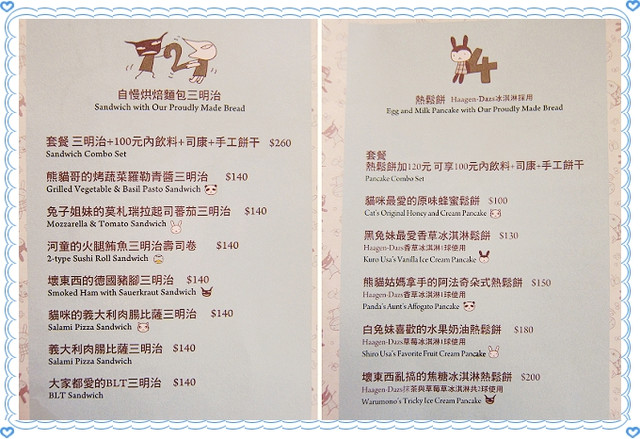 2
自慢烘焙麵包三明治
Sandwich with Our Proudly Made Bread
套餐 三明治+100元內飲料+司康+手工餅干 $260
Sandwich Combo Set
熊貓哥的烤蔬菜羅勒青醬三明治 $140
Grilled Vegetable & Basil Pasto Sandwich
兔子姐妹的莫札瑞拉起司蕃茄三明治 $140
Mozzarella & Tomato Sandwich
河童的火腿鮪魚三明治壽司卷 $140
2-type Sushi Roll Sandwich
壞東西的德國豬腳三明治 $140
Smoked Ham with Sauerkraut Sandwich
貓咪的義大利肉腸比薩三明治 $140
Salami Pizza Sandwich
義大利肉腸比薩三明治 $140
Salami Pizza Sandwich
大家都愛的BLT三明治 $140
BLT Sandwich
4
熱鬆餅 Haagen-Dazs冰淇淋採用
Egg and Milk Pancake with Our Proudly Made Bread
套餐
熱鬆餅加120元 可享100元內飲料+司康+手工餅干
Pancake Combo Set
貓咪最愛的原味蜂蜜鬆餅 $100
Cat's Original Honey and Cream Pancake
黑兔妹最愛香草冰淇淋鬆餅 $130
Haagen-Dazs香草冰淇淋1球使用
Kuro Usa's Vanilla Ice Cream Pancake
熊貓姑媽拿手的阿法奇朵式熱鬆餅 $150
Haagen-Dazs香草冰淇淋1球使用
Panda's Aunt's Affogato Pancake
白兔妹喜歡的水果奶油熱鬆餅 $180
Haagen-Dazs草莓冰淇淋1球使用
Shiro Usa's Favorite Fruit Cream Pancake
壞東西亂搞的焦糖冰淇淋熱鬆餅 $200
Haagen-Dazs抹茶與草莓冰淇淋共2球使用
Warumono's Tricky Ice Cream Pancake